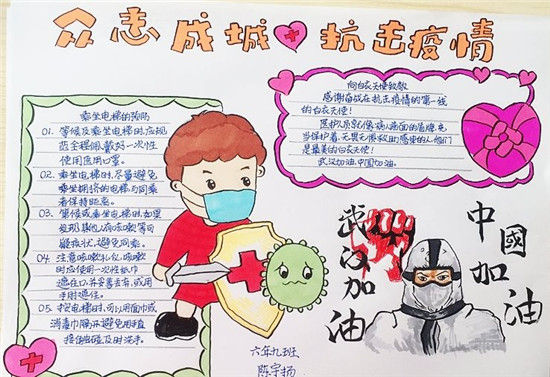 众志成城 抗击疫情
乘坐电梯的预防
01. 等候及乘坐电梯时,应规
范全程佩戴好一次性
使用医用口罩。
02. 乘坐电梯时,尽量避免
乘坐拥挤的电梯与同乘
者保持距离。
03. 等候或乘坐电梯时,如果
发现其他人有咳嗽等可
疑症状,避免同乘。
04. 注意咳嗽礼仪,咳嗽
时应使用一次性纸巾
遮住口,并妥善丢弃,或用
手肘遮住。
05. 按电梯时,可以用面巾或
消毒巾隔开避免用手直
接接触,及时洗手。
向白衣天使致敬
感谢奋战在抗击疫情的第一线
的白衣天使!
当保护着,无畏无惧救助感染的人,他们
是最美的白衣天使!
武汉加油,中国加油。
武汉加油
中國加油
六年九班
陈宇扬